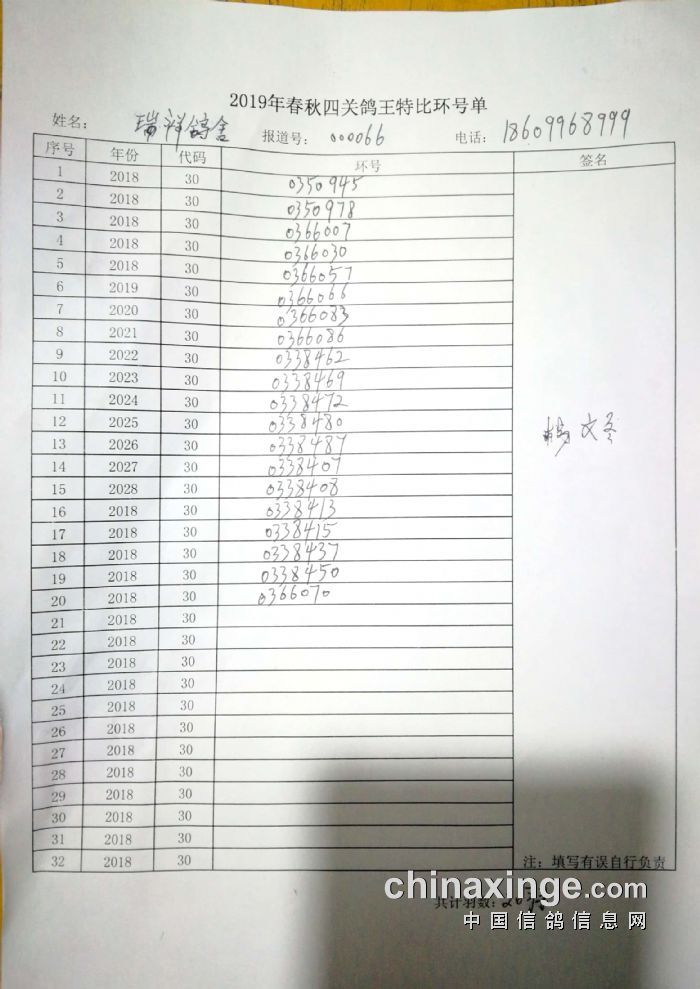 2019年春秋四关鸽王特比环号单
姓名: 瑞祥鸽舍 报道号: 000066 电话: 18609968999
序号 年份 代码 环号 签名
1 2018 30 0350945
2 2018 30 0350978
3 2018 30 0366007
4 2018 30 0366030
5 2018 30 0366057
6 2019 30 0366066
7 2020 30 0366083
8 2021 30 0366086
9 2022 30 0338462
10 2023 30 0338469
11 2024 30 0338472
12 2025 30 0338480
13 2026 30 0338487
14 2027 30 0338407
15 2028 30 0338408
16 2018 30 0338413
17 2018 30 0338415
18 2018 30 0338437
19 2018 30 0338450
20 2018 30 0366070
21 2018 30
22 2018 30
23 2018 30
24 2018 30
25 2018 30
26 2018 30
27 2018 30
28 2018 30
29 2018 30
30 2018 30
31 2018 30
32 2018 30
杨文冬
注: 填写有误自行负责
共计羽数: 20
chinaxinge.com
中国信鸽信息网